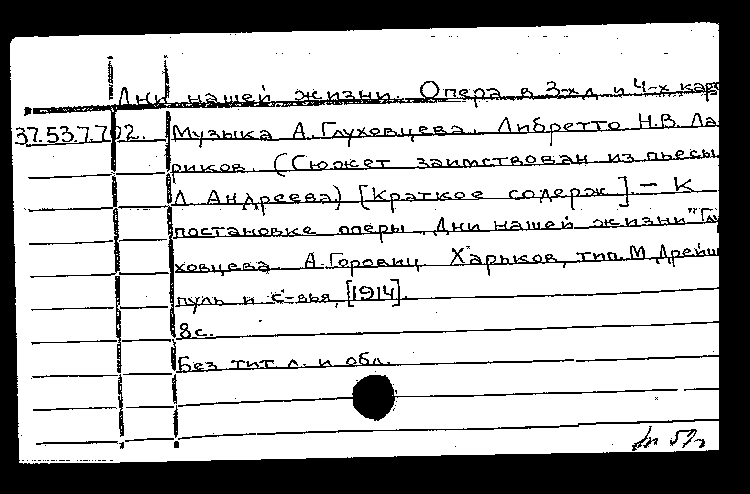 Дни нашей жизни. Опера в 3-х д. и 4-х карт
37.53.7.702. Музыка А. Глуховцева. Либретто Н.В. Ла-
риков. (Сюжет заимствован из пьесы
Л. Андреева) [Краткое содерж]. — К
постановке оперы „Дни нашей жизни" Глу
ховцева А. Горовиц. Харьков, тип. М. Дрейш
пуль и с-вья, [1914].
8 с.
Без тит. л. и обл.